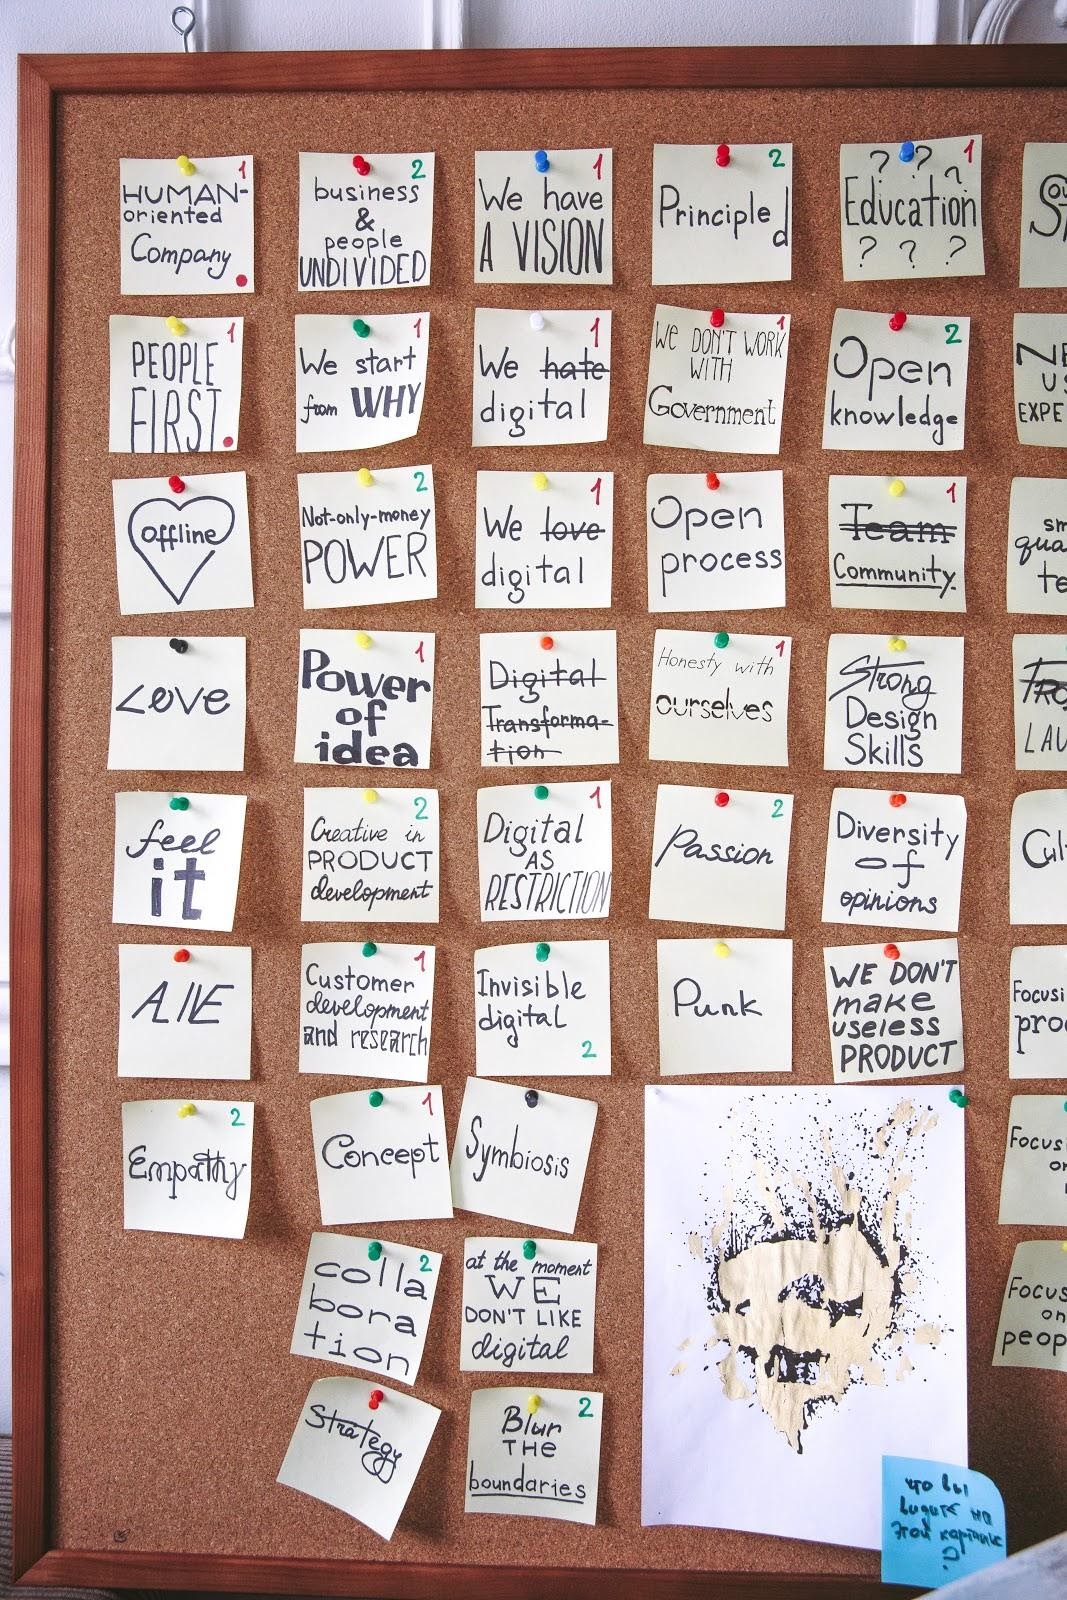 1
HUMAN-
oriented
Company
2
business
&
people
UNDIVIDED
1
We have
A VISION
2
Principle
d
1
? ? ?
Education
? ? ?
1
PEOPLE
FIRST.
1
We start
from WHY
1
We hate
digital
1
We DON'T WORK
WITH
Government
2
Open
knowledge
offline
2
Not-only-money
POWER
1
We love
digital
Open
process
1
Team
Community.
Love
1
Power
of
idea
Digital
Transforma-
tion
1
Honesty with
ourselves
Strong
Design
Skills
LAU
feel
it
2
Creative in
PRODUCT
development
1
Digital
AS
RESTRICTION
2
Passion
Diversity
of
opinions
Cul
ALIVE
1
Customer
development
and research
Invisible
digital
2
Punk
WE DON'T
make
useless
PRODUCT
Focusi
pro
2
Empathy
1
Concept
Symbiosis
Focus
on
2
colla
bora
tion
at the moment
WE
DON'T LIKE
digital
Focus
on
peop
Strategy
2
Blur
THE
boundaries
что вы
видите на
этой картинке
?